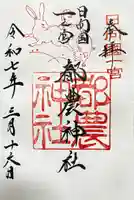 奉拝
日向国
一之宮
都農神社
都農神社
令和七年三月十六日